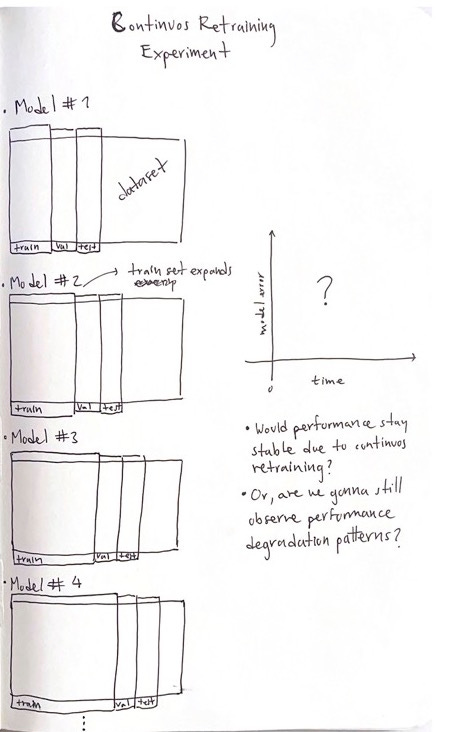 Continuos Retraining
Experiment
• Model #1
dataset
train
val
test
• Model #2
train set expands
train
val
test
• Model #3
train
val
test
• Model #4
train
val
test
model error
?
0
time
• Would performance stay
stable due to continuos
retraining?
• Or, are we gonna still
observe performance
degradation patterns?